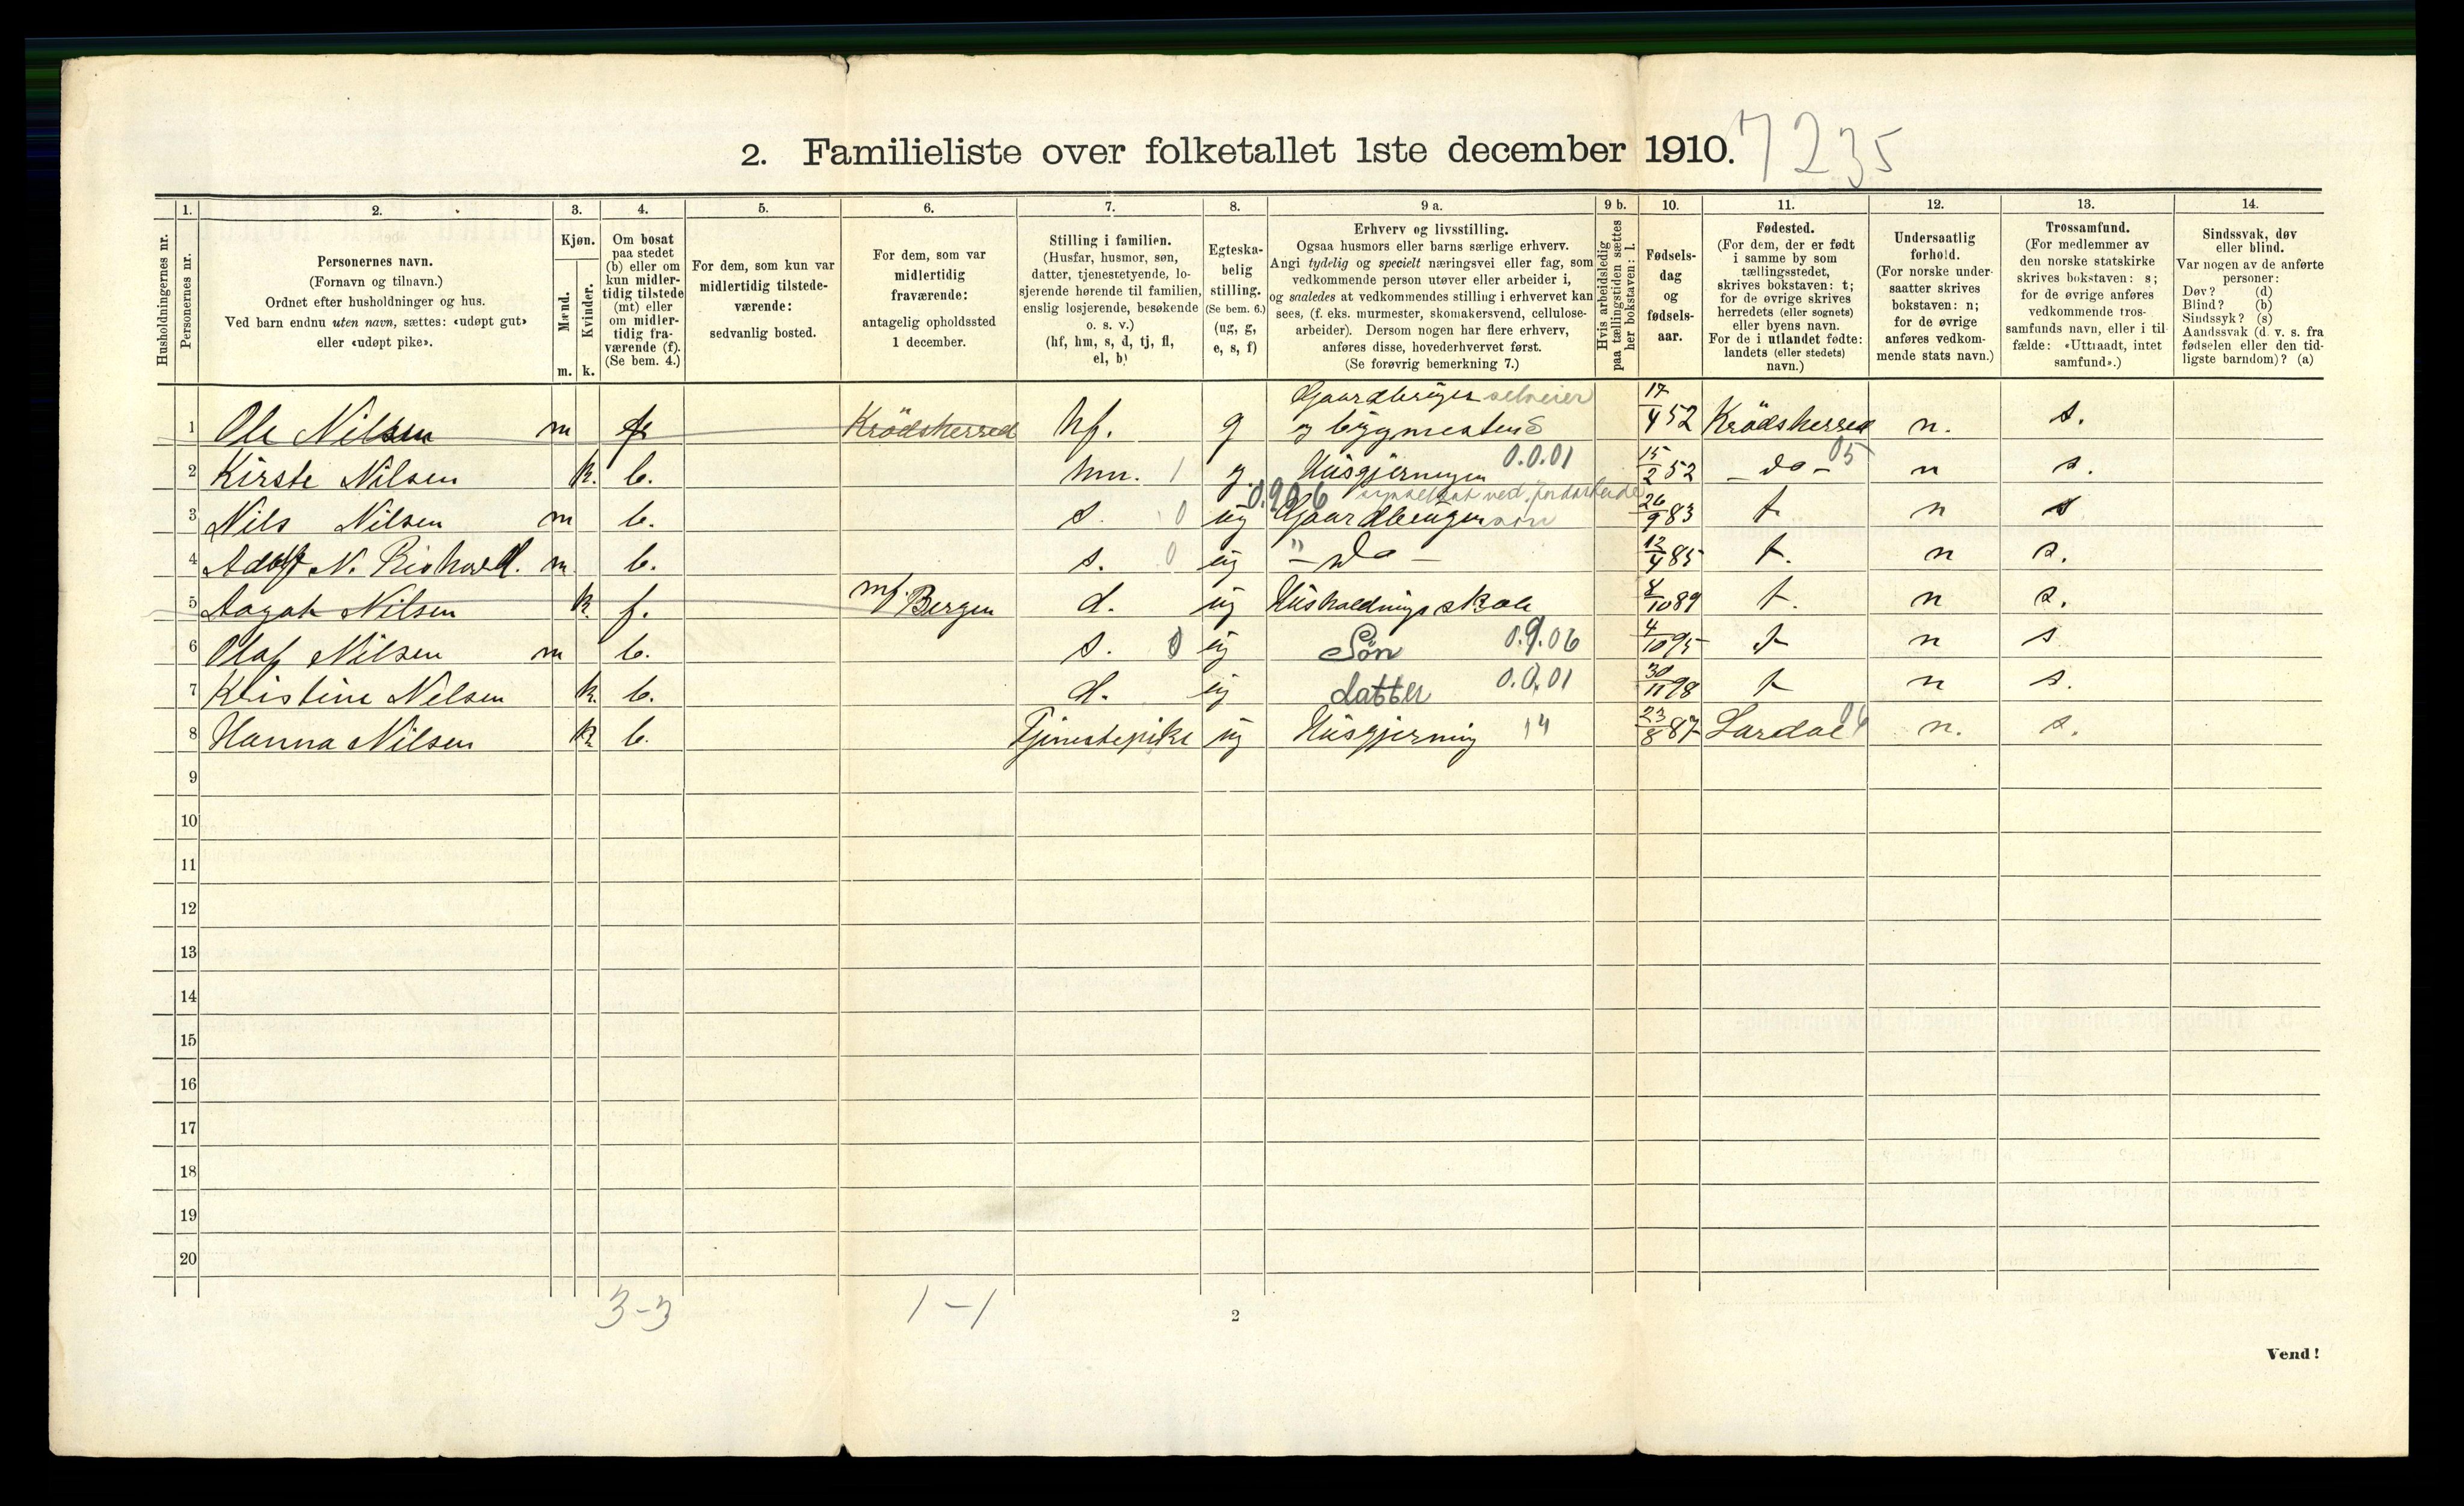 2. Familieliste over folketallet 1ste december 1910. 7235
Husholdningernes nr.
1.
Personernes nr.
2.
Personernes navn.
(Fornavn og tilnavn.)
Ordnet efter husholdninger og hus.
Ved barn endnu uten navn, sættes: «udøpt gut»
eller «udøpt pike».
3.
Kjøn.
Mænd.
Kvinder.
m. k.
4.
Om bosat
paa stedet
(b) eller om
kun midler-
tidig tilstede
(mt) eller
om midler-
tidig fra-
værende (f).
(Se bem. 4.)
5.
For dem, som kun var
midlertidig tilstede-
værende:
sedvanlig bosted.
6.
For dem, som var
midlertidig
fraværende:
antagelig opholdssted
1 december.
7.
Stilling i familien.
(Husfar, husmor, søn,
datter, tjenestetyende, lo-
sjerende hørende til familien,
enslig losjerende, besøkende
o. s. v.)
(hf, hm, s, d, tj, fl,
el, b)
8.
Egteska-
belig
stilling.
(Se bem. 6.)
(ug, g,
e, s, f)
9 a.
Erhverv og livsstilling.
Ogsaa husmors eller barns særlige erhverv.
Angi tydelig og specielt næringsvei eller fag, som
vedkommende person utøver eller arbeider i,
og saaledes at vedkommendes stilling i erhvervet kan
sees, (f. eks. murmester, skomakersvend, cellulose-
arbeider). Dersom nogen har flere erhverv,
anføres disse, hovederhvervet først.
(Se forøvrig bemerkning 7.)
9 b.
Hvis arbeidsledig
paa tællingstiden sættes
her bokstaven: l.
10.
Fødsels-
dag
og
fødsels-
aar.
11.
Fødested.
(For dem, der er født
i samme by som
tællingsstedet,
skrives bokstaven: t;
for de øvrige skrives
herredets (eller sognets)
eller byens navn.
For de i utlandet fødte:
landets (eller stedets)
navn.)
12.
Undersaatlig
forhold.
(For norske under-
saatter skrives
bokstaven: n;
for de øvrige
anføres vedkom-
mende stats navn.)
13.
Trossamfund.
(For medlemmer av
den norske statskirke
skrives bokstaven: s;
for de øvrige anføres
vedkommende tros-
samfunds navn, eller i til-
fælde: «Uttraadt, intet
samfund».)
14.
Sindssvak, døv
eller blind.
Var nogen av de anførte
personer:
Døv? (d)
Blind? (b)
Sindssyk? (s)
Aandssvak (d. v. s. fra
fødselen eller den tid-
ligste barndom)? (a)
Gaardbruger selveier
1 Ole Nilsen m f Krödsherred hf. g og byggmester S 17/4 52 Krödsherred n. s.
2 Kirste Nilsen k. b. hm. 1 g. Husgjerningen 0.0.01 15/2 52 - do - 05 n s.
0.906
3 Nils Nilsen m b. s. 0 ug Gaardbruger søn 26/9 83 t n s
4 Adolf N. Richard. m b. s. 0 ug " - do - 12/4 85 t. n s.
5 Aagot Nilsen k. f. mf. Bergen d. ug Husholdningsskole 8/10 89 t. n s.
6 Olaf Nilsen m b. s. 0 ug Søn 0.9.06 4/10 95 t n s
7 Kristine Nilsen k. b. d. ug datter 0.0.01 30/11 98 t n s.
8 Hanna Nilsen k. b. Tjenestepike ug Husgjerning 14 23/8 87 Lardal n. s.
9
10
11
12
13
14
15
16
17
18
19
20
3-3 1-1
2
Vend!